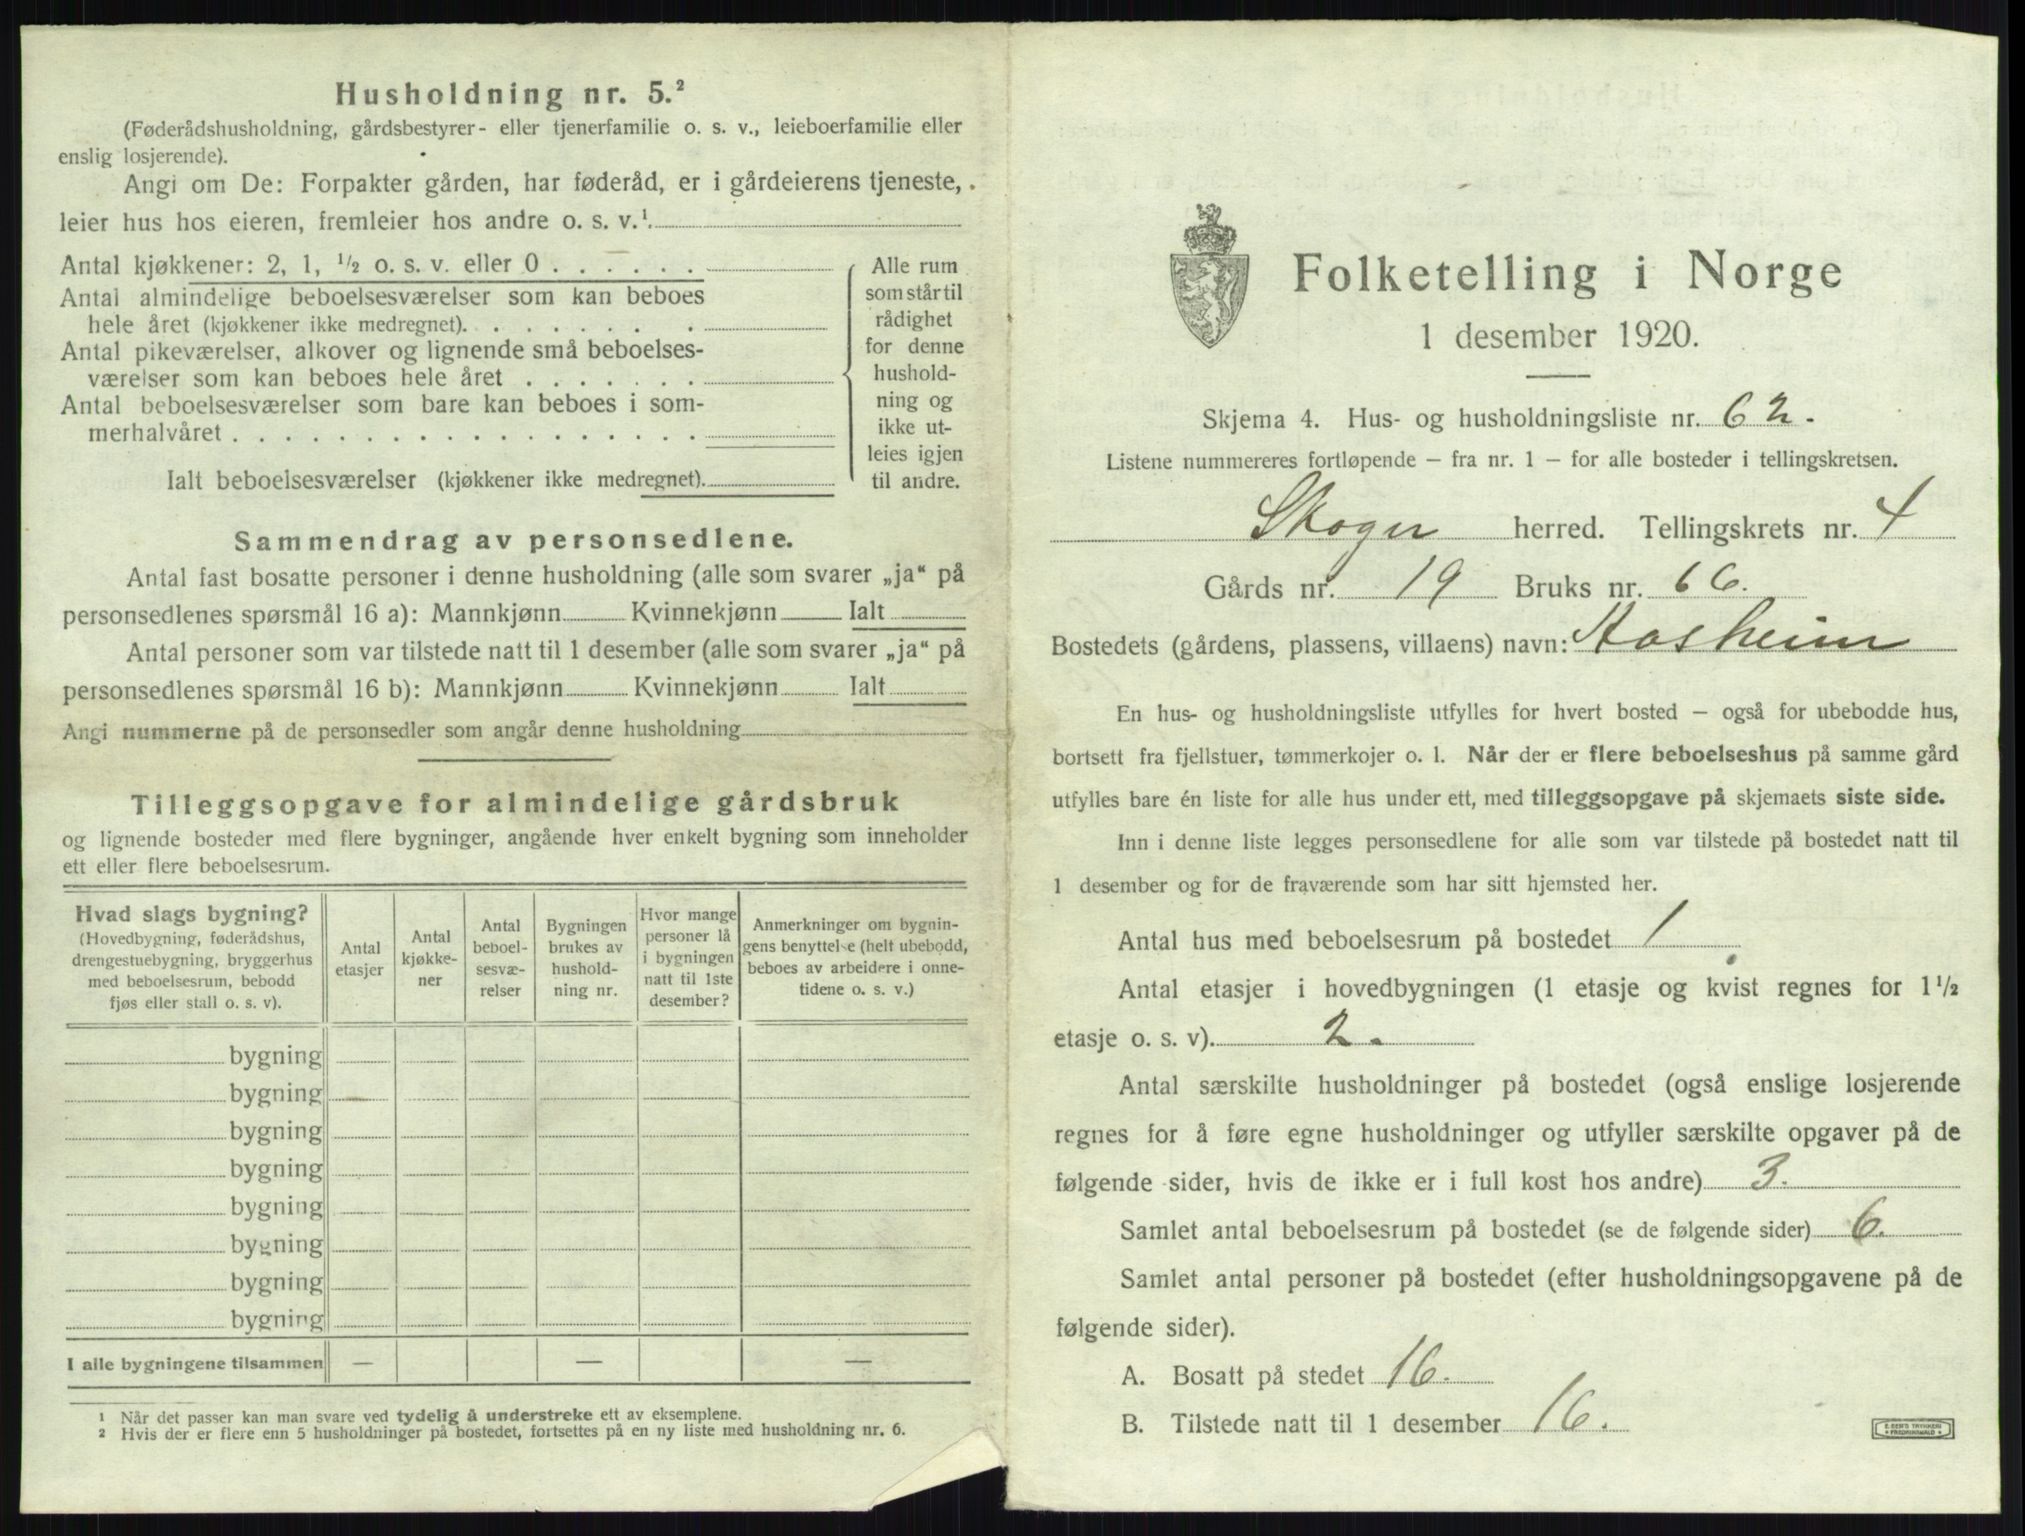 Husholdning nr. 5.²
(Føderådshusholdning, gårdsbestyrer- eller tjenerfamilie o. s. v., leieboerfamilie eller
enslig losjerende).
Angi om De: Forpakter gården, har føderåd, er i gårdeierens tjeneste,
leier hus hos eieren, fremleier hos andre o. s. v.¹
Antal kjøkkener: 2, 1, ½ o. s. v. eller 0 . . . . . .
Antal almindelige beboelsesværelser som kan beboes
hele året (kjøkkener ikke medregnet). . . . . . . .
Antal pikeværelser, alkover og lignende små beboelses-
værelser som kan beboes hele året . . . . . . .
Antal beboelsesværelser som bare kan beboes i som-
merhalvåret . . . . . . . . . . . . . . . . . .
Ialt beboelsesværelser (kjøkkener ikke medregnet).
Alle rum
som står til
rådighet
for denne
hushold-
ning og
ikke ut-
leies igjen
til andre.
Sammendrag av personsedlene.
Antal fast bosatte personer i denne husholdning (alle som svarer „ja“ på
personsedlenes spørsmål 16 a): Mannkjønn Kvinnekjønn Ialt
Antal personer som var tilstede natt til 1 desember (alle som svarer „ja“ på
personsedlenes spørsmål 16 b): Mannkjønn Kvinnekjønn Ialt
Angi nummerne på de personsedler som angår denne husholdning
Tilleggsopgave for almindelige gårdsbruk
og lignende bosteder med flere bygninger, angående hver enkelt bygning som inneholder
ett eller flere beboelsesrum.
Hvad slags bygning?
(Hovedbygning, føderådshus,
drengestuebygning, bryggerhus
med beboelsesrum, bebodd
fjøs eller stall o. s. v).
Antal
etasjer
Antal
kjøkke-
ner
Antal
beboel-
sesvæ-
relser
Bygningen
brukes av
hushold-
ning nr.
Hvor mange
personer lå
i bygningen
natt til 1ste
desember?
Anmerkninger om bygnin-
gens benyttelse (helt ubebodd,
beboes av arbeidere i onne-
tidene o. s. v.)
bygning
bygning
bygning
bygning
bygning
bygning
bygning
bygning
I alle bygningene tilsammen — — —
¹ Når det passer kan man svare ved tydelig å understreke ett av eksemplene.
² Hvis der er flere enn 5 husholdninger på bostedet, fortsettes på en ny liste med husholdning nr. 6.
Folketelling i Norge
1 desember 1920.
Skjema 4. Hus- og husholdningsliste nr. 62.
Listene nummereres fortløpende – fra nr. 1 – for alle bosteder i tellingskretsen.
Skoger herred. Tellingskrets nr. 4
Gårds nr. 19 Bruks nr. 66.
Bostedets (gårdens, plassens, villaens) navn: Aasheim
En hus- og husholdningsliste utfylles for hvert bosted – også for ubebodde hus,
bortsett fra fjellstuer, tømmerkojer o. l. Når der er flere beboelseshus på samme gård
utfylles bare én liste for alle hus under ett, med tilleggsopgave på skjemaets siste side.
Inn i denne liste legges personsedlene for alle som var tilstede på bostedet natt til
1 desember og for de fraværende som har sitt hjemsted her.
Antal hus med beboelsesrum på bostedet 1.
Antal etasjer i hovedbygningen (1 etasje og kvist regnes for 1½
etasje o. s. v). 2.
Antal særskilte husholdninger på bostedet (også enslige losjerende
regnes for å føre egne husholdninger og utfyller særskilte opgaver på de
følgende sider, hvis de ikke er i full kost hos andre) 3.
Samlet antal beboelsesrum på bostedet (se de følgende sider) 6.
Samlet antal personer på bostedet (efter husholdningsopgavene på de
følgende sider).
A. Bosatt på stedet 16.
B. Tilstede natt til 1 desember 16.